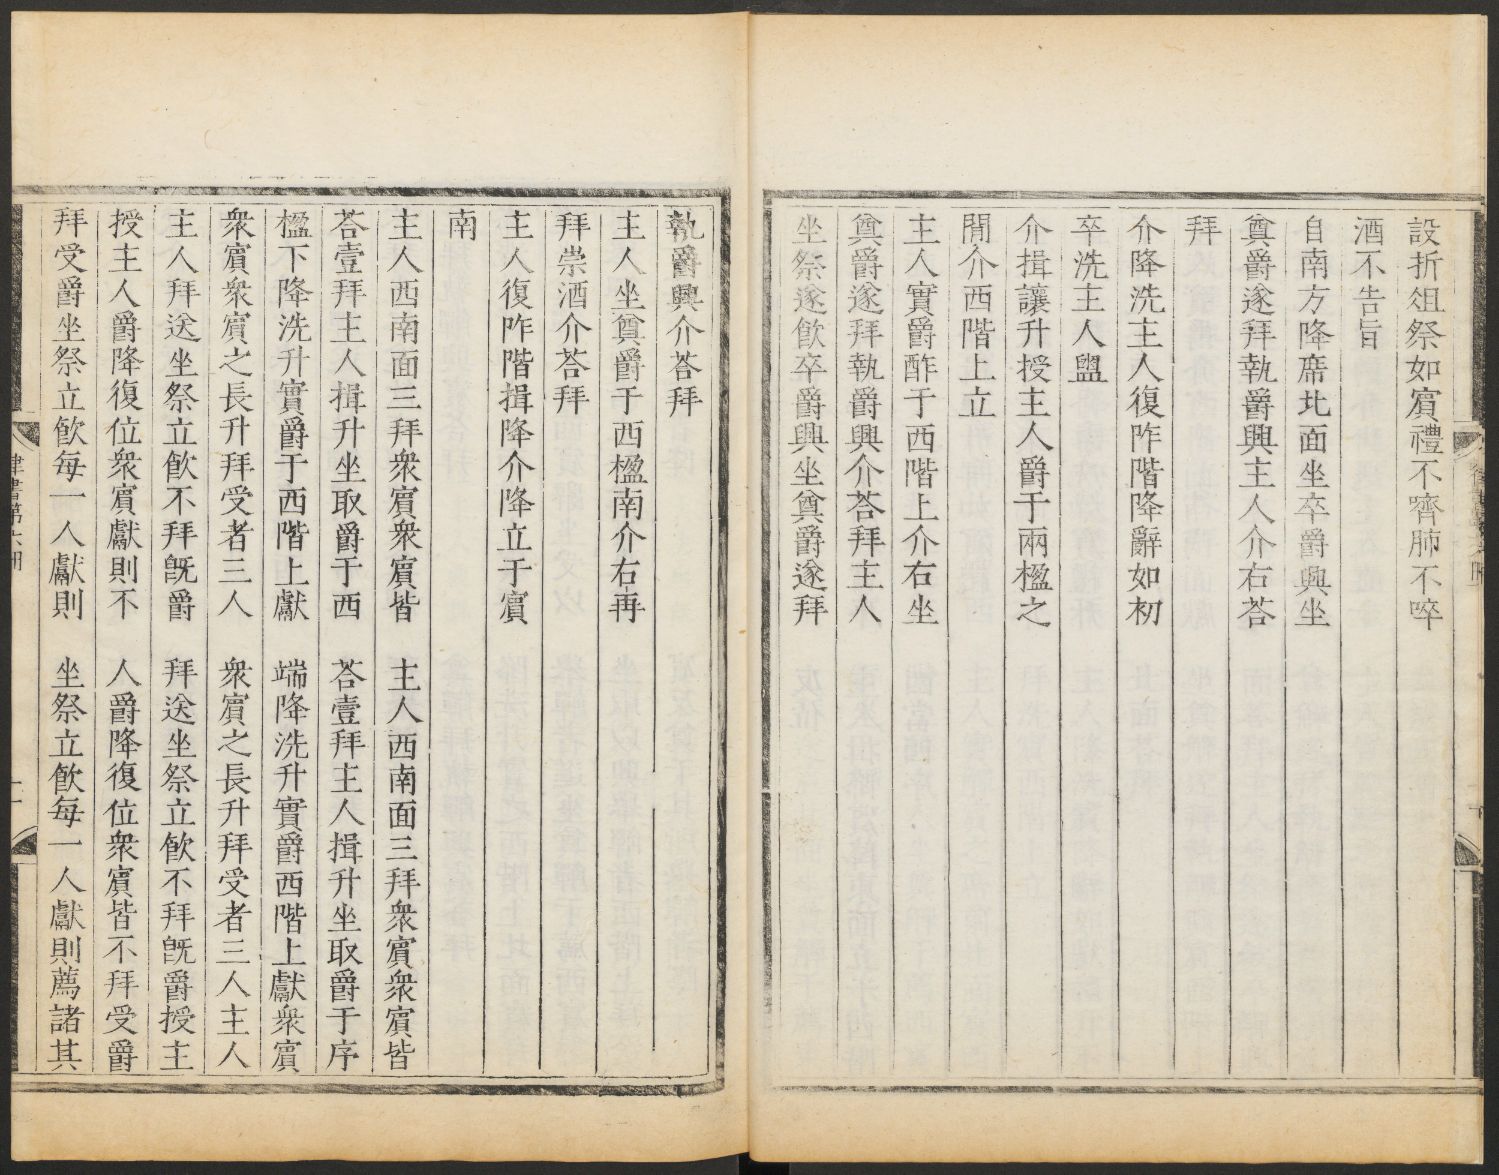 設折俎祭如賔禮不嚌肺不啐
酒不告旨
自南方降席北面坐卒爵興坐
奠爵遂拜執爵興主人介右荅
拜
介降洗主人復阼階降辭如初
卒洗主人盥
介揖讓升授主人爵于兩楹之
間介西階上立
主人實爵酢于西階上介右坐
奠爵遂拜執爵興介荅拜主人
坐祭遂飮卒爵興坐奠爵遂拜
執爵興介荅拜
主人坐奠爵于西楹南介右再
拜崇酒介荅拜
主人復阼階揖降介降立于賔
南
主人西南面三拜衆賔衆賔皆
荅壹拜主人揖升坐取爵于西
楹下降洗升實爵于西階上獻
衆賔衆賔之長升拜受者三人
主人拜送坐祭立飮不拜旣爵
授主人爵降復位衆賔獻則不
拜受爵坐祭立飮每一人獻則
主人西南面三拜衆賔衆賔皆
荅壹拜主人揖升坐取爵于序
端降洗升實爵西階上獻衆賔
衆賔之長升拜受者三人主人
拜送坐祭立飮不拜旣爵授主
人爵降復位衆賔皆不拜受爵
坐祭立飮每一人獻則薦諸其